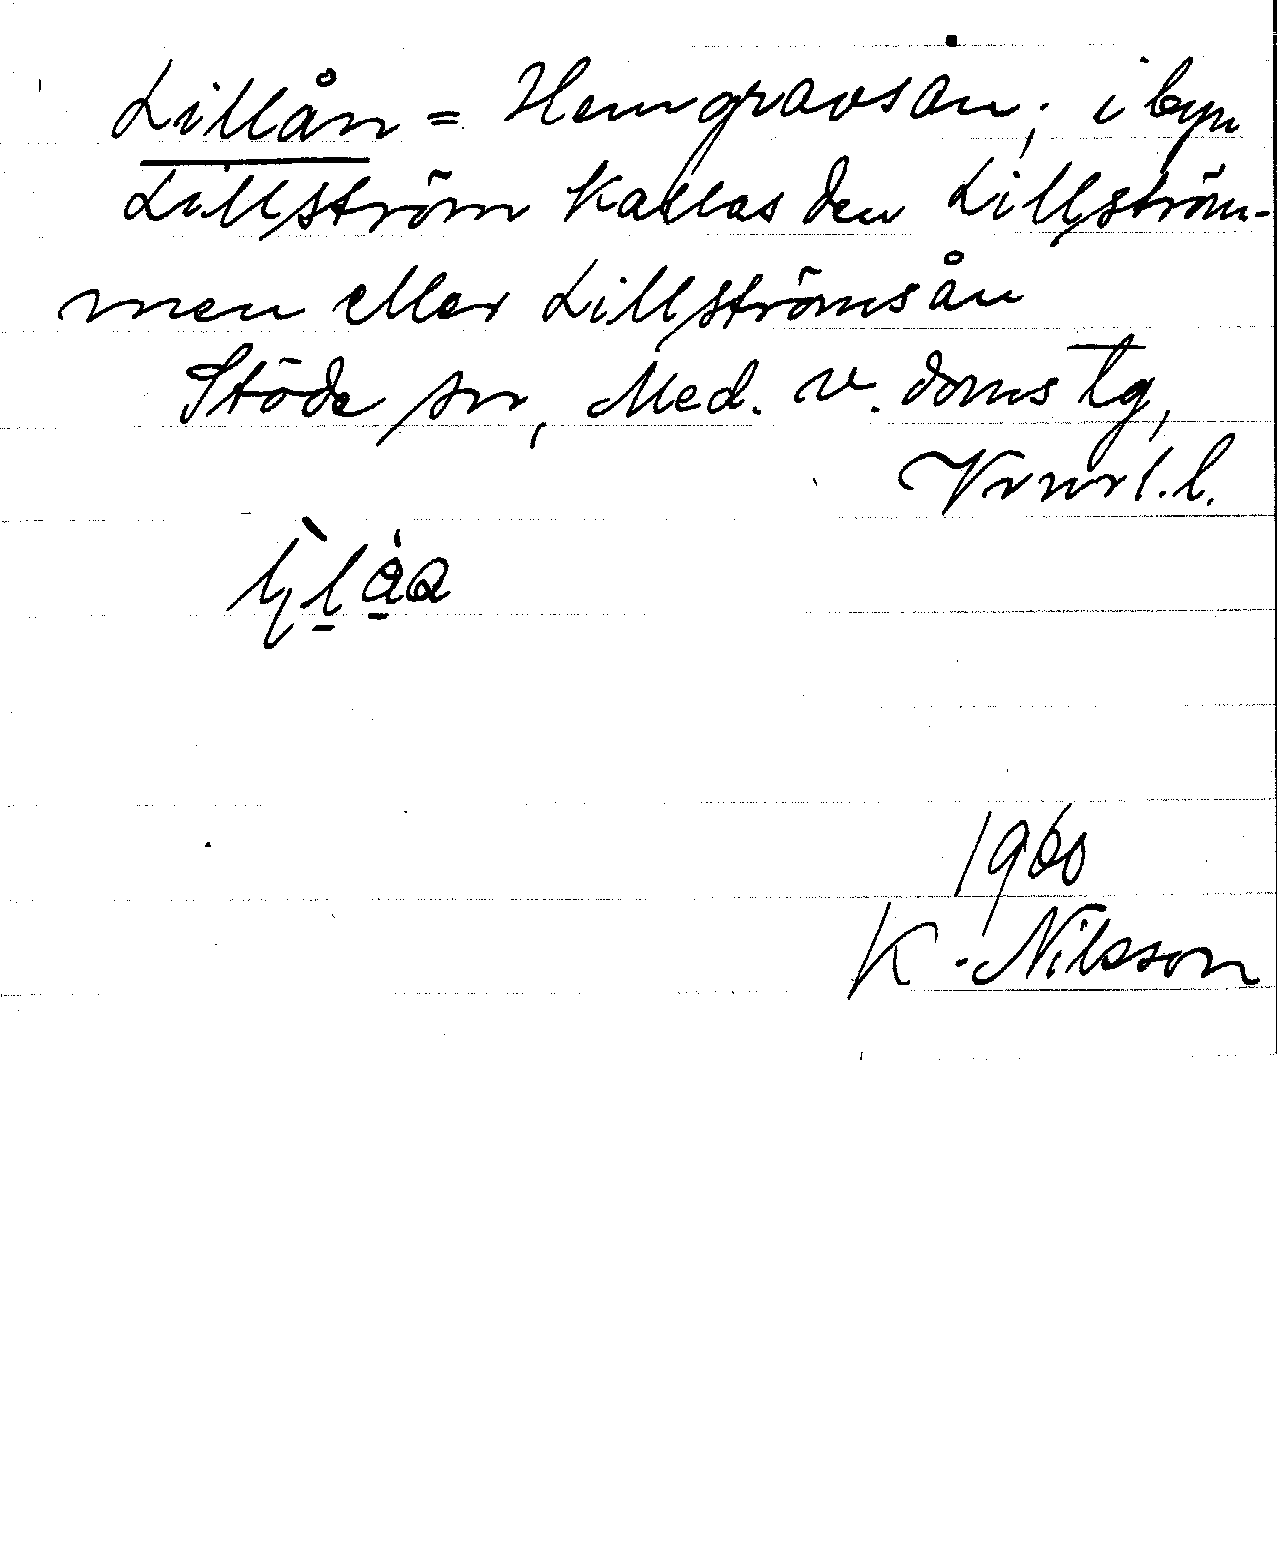 Lillån = Hemgravsån; i byn
Lillström kallas den Lillström-
men eller Lillströmsån
Stöde sn, Med. v. doms tg,
Vrnorl. l.
1960
K. Nilsson